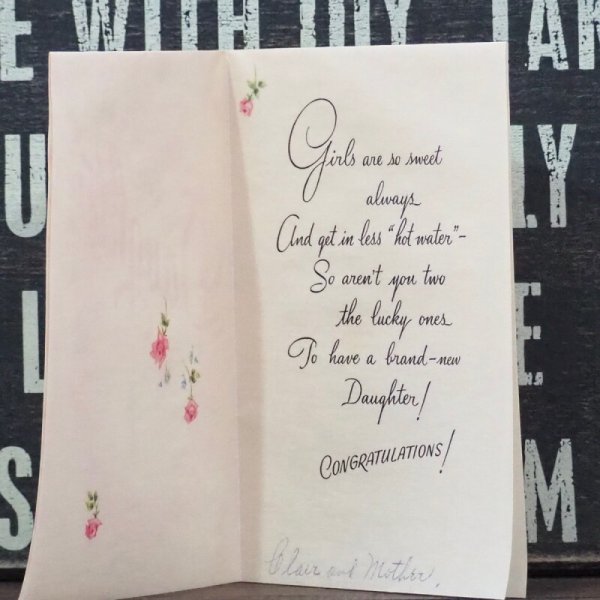 E WITH JOY
Girls are so sweet
always
And get in less "hot water"–
So aren't you two
the lucky ones
To have a brand-new
Daughter!
CONGRATULATIONS!
Clair and Mother.